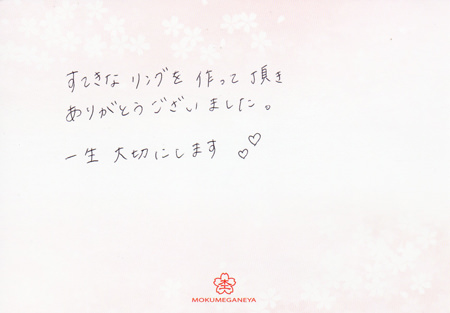 すてきな リングを 作って 頂き
ありがとうございました。
一生 大切にします ♡♡
MOKUMEGANEYA